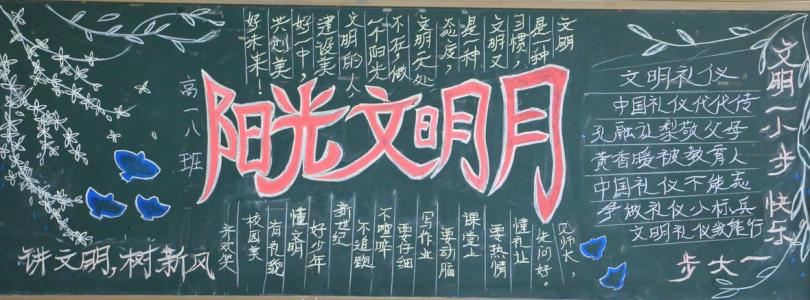 阳光文明月
高一八班
文明
是一种
习惯，
文明又
是一种
态度
文明无处
不在，做
个阳光
文明的人
建设美
好中，
共创美
好未来！
文明礼仪
中国礼仪代代传
孔融让梨敬父母
黄香暖被教育人
中国礼仪不能忘
争做礼仪小标兵
文明礼仪我能行
文明一小步 快乐
一大步
见师长，
先问好。
懂礼让
要热情
课堂上
要动脑
写作业
要仔细
不喧哗
不追跑
新世纪
好少年
懂文明
有礼貌
校园美
乐欢笑
讲文明，树新风